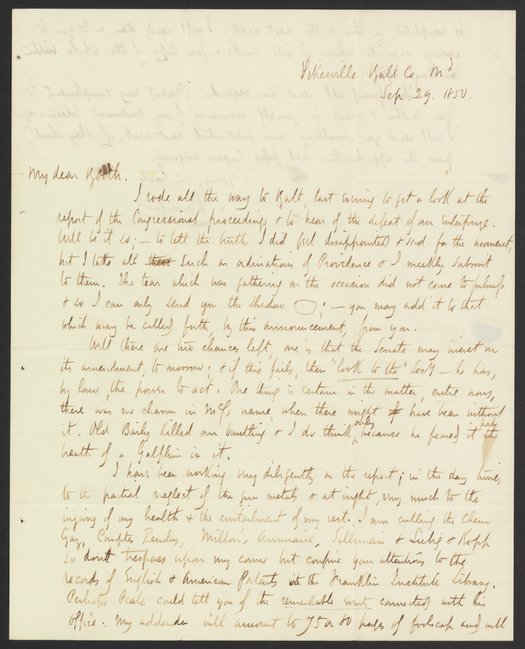 Pikesville. Balt. Co. Md
Sep 29. 1850.
My dear Booth.
I rode all the way to Balt, last evening to get a look at the
report of the Congressional proceedings & to hear of the defeat of our enterprise.
Well be it so; — to tell the truth I did feel disappointed & sad for the moment,
but I take all such as ordinations of Providence & I meekly submit
to them. The tear which was gathering on the occasion did not come to
& so I can only send you the shadow ; — you may add it to that
which may be called forth, by this announcement, from you.
Well there are two chances left, one is that the Senate may insist on
its amendment, to morrow; & if this fails, then "look to the" Secy — he has,
by law, the power to act. One thing is certain in the matter, entre nous,
there was no charm in McC's name, when there might have been without
it. Old Baily killed our bantling & I do think only because he feared it had the
breath of a Galphin in it.
I have been working very diligently on the report; in the day time,
to the partial neglect of the gun metals & at night, very much to the
injury of my health & the curtailment of my rest. I am culling the Chem
Gaz, Comptes Rendus, Millon's Annuaire, Silliman & Liebig & Kopp
so dont trespass upon my corner but confine your attentions to the
records of English & American Patents at the Franklin Institute Library.
Perhaps Peale could tell you of the remarkable events connected with his
office. My addenda will amount to 75 or 80 pages of foolscap and will